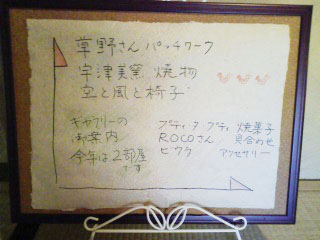 草野さん パッチワーク
宇津美窯 焼物
空と風と椅子
ギャラリーの
御案内
今年は2部屋
です
プティ・タ・プティ 焼菓子
ROCOさん 貝合わせ
ピッケ アクセサリー